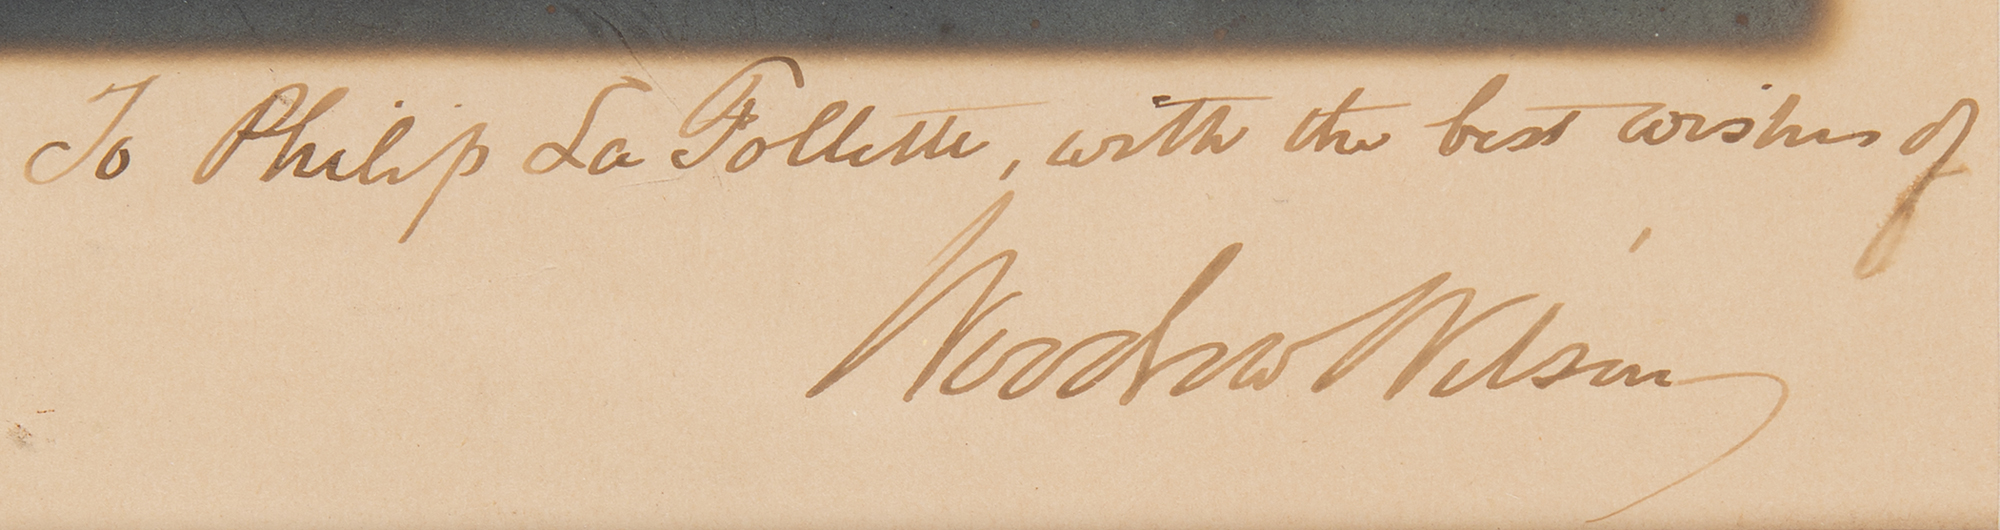 To Philip La Follette, with the best wishes of
Woodrow Wilson